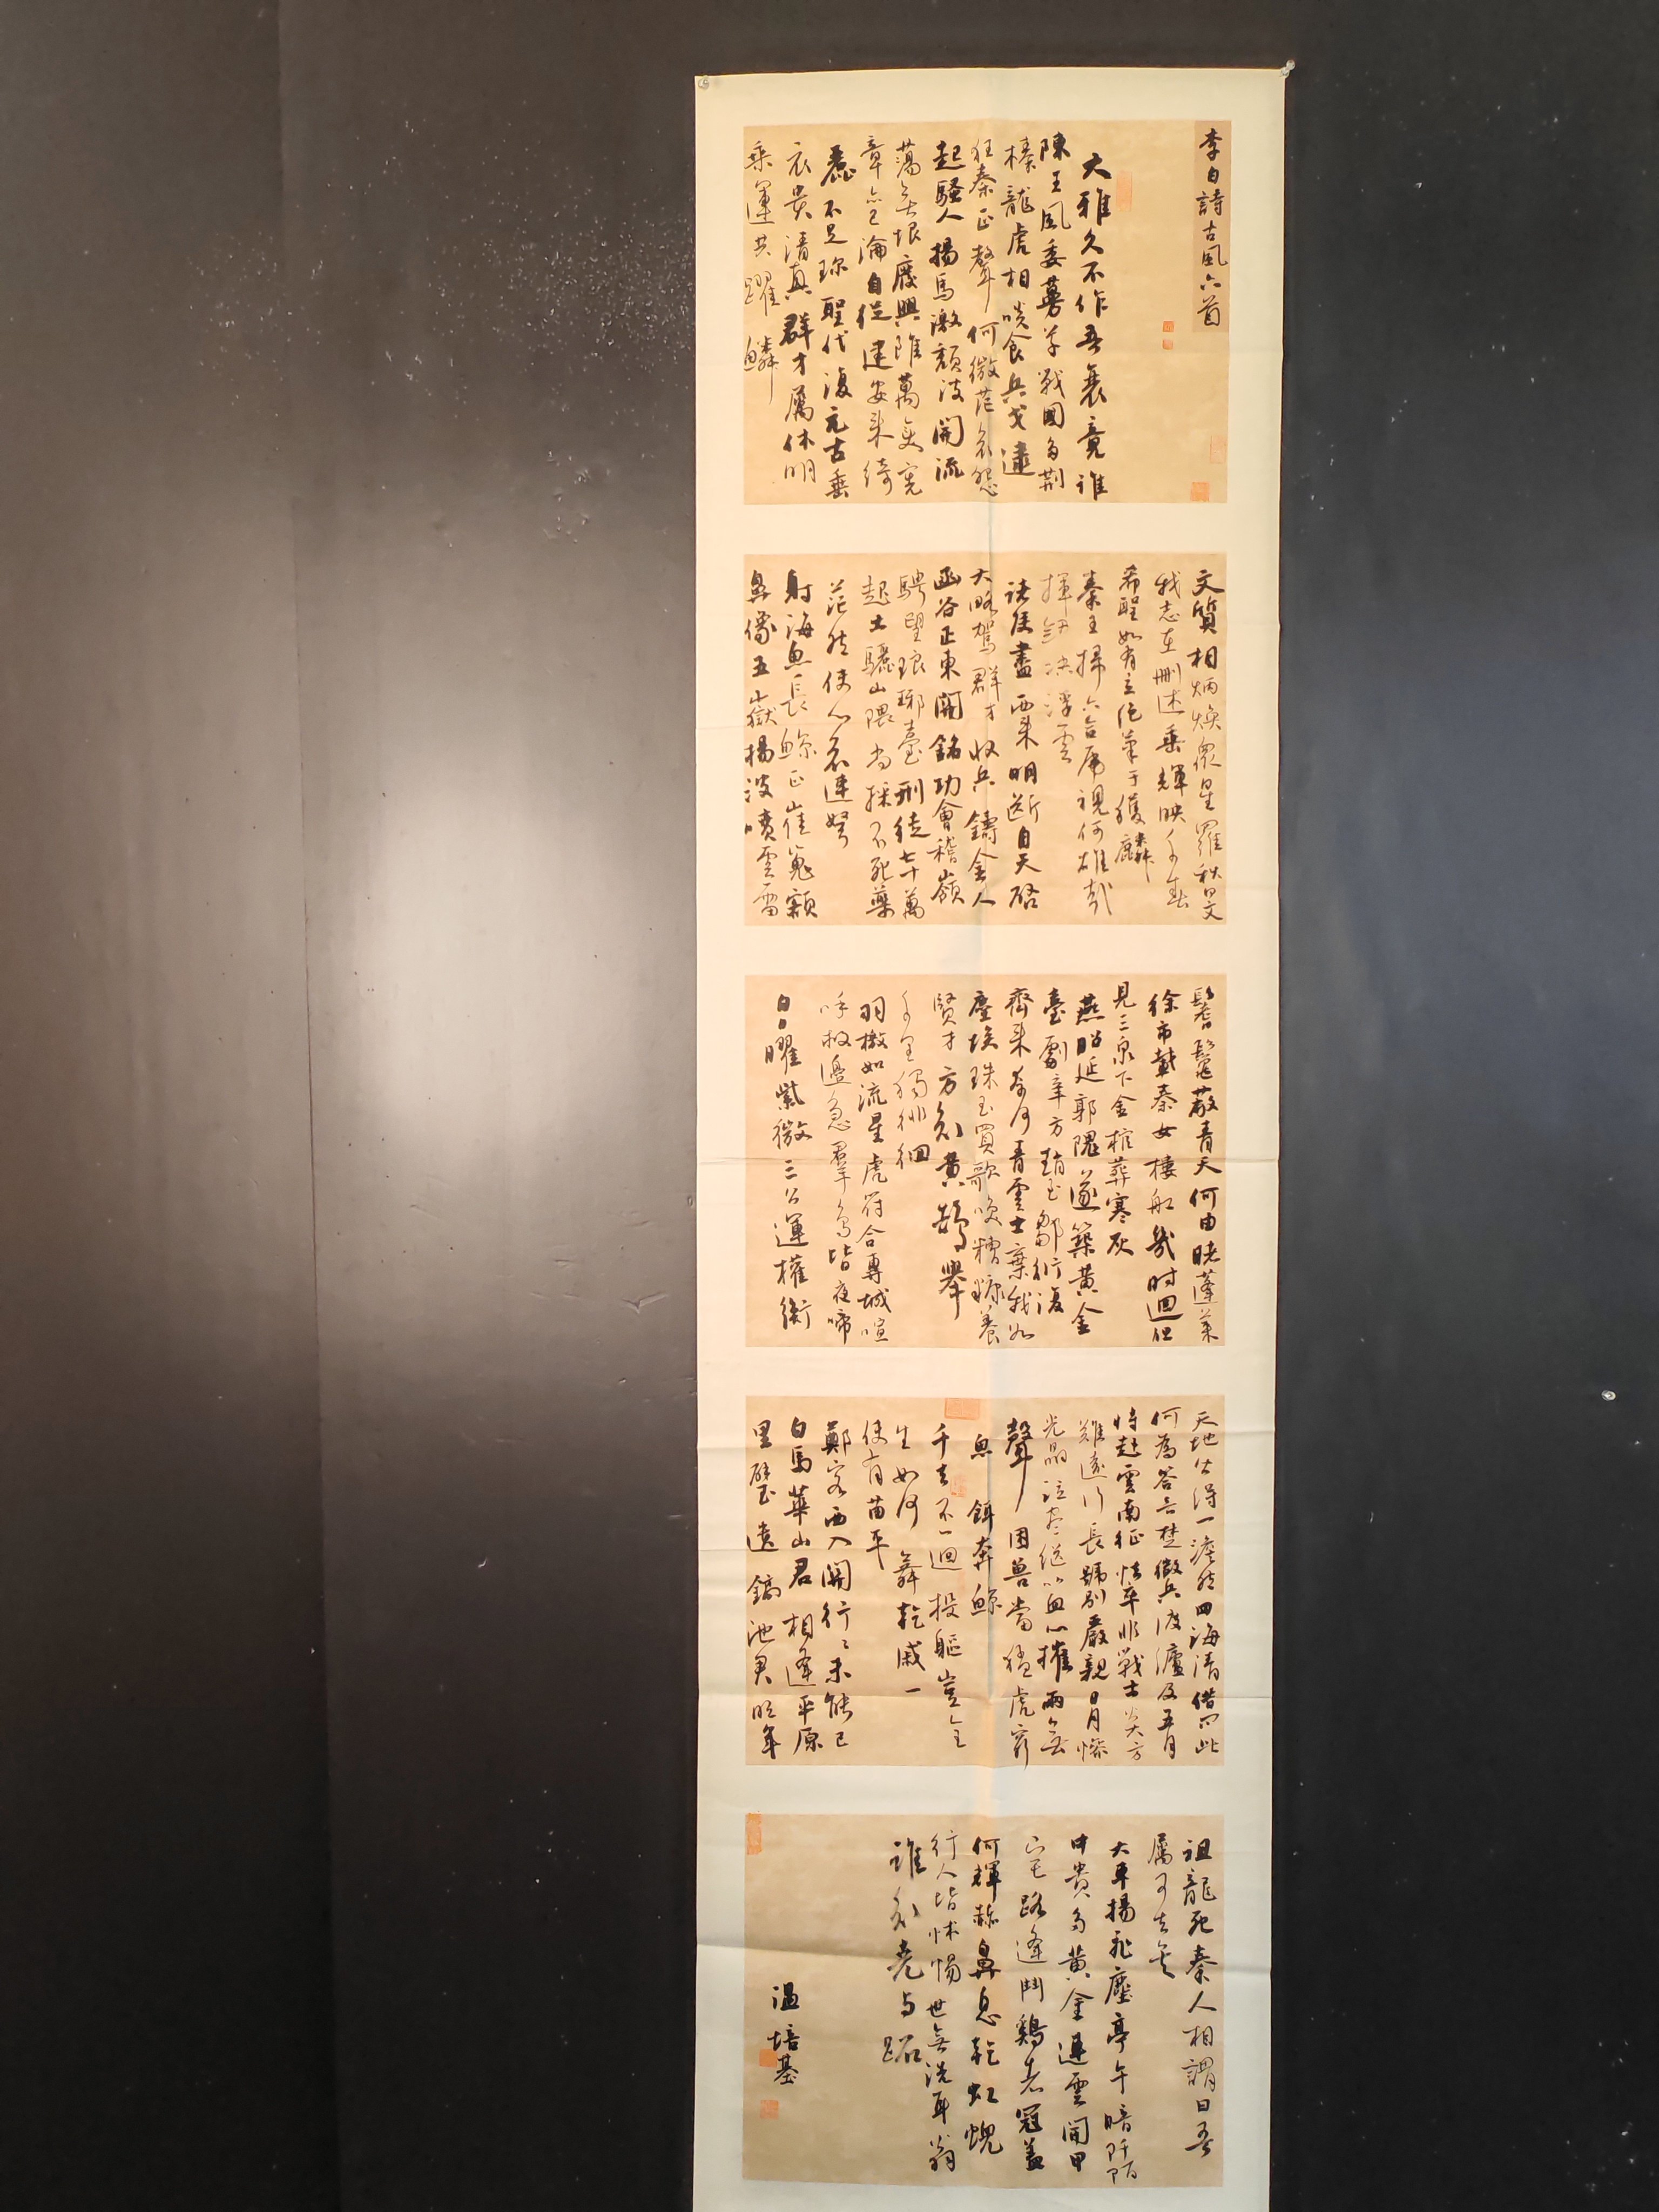 李白詩古風六首
大雅久不作吾衰竟誰
陳王風委蔓草戰國多荆
榛龍虎相啖食兵戈逮
狂秦正聲何微茫哀怨
起騷人揚馬激頹波開流
蕩無垠廢興雖萬變憲
章亦已淪自從建安來綺
麗不足珍聖代復元古垂
衣貴清真群才屬休明
乘運共躍鱗
文質相炳煥眾星羅秋旻
我志在刪述垂輝映千春
希聖如有立絕筆于獲麟
秦王掃六合虎視何雄哉
揮劍決浮雲
諸侯盡西來明斷自天啓
大略駕群才收兵鑄金人
函谷正東開銘功會稽嶺
騁望琅琊臺刑徒七十萬
起土驪山隈尚採不死藥
茫然使心哀連弩
射海魚長鯨正崔嵬額
鼻像五嶽揚波噴雲雷
鬐鬣蔽青天何由睹蓬萊
徐巿載秦女樓船幾時迴但
見三泉下金棺葬寒灰
燕昭延郭隗遂築黃金
臺劇辛方趙至鄒衍復
齊來奈何青雲士棄我如
塵埃珠玉買歌笑糟糠養
賢才方知黃鵠舉
千里獨徘徊
羽檄如流星虎符合專城喧
呼救邊急羣鳥皆夜啼
白日曜紫微三公運權衡
天地皆得一澹然四海清借問此
何為答言楚徵兵渡瀘及五月
將赴雲南征怯卒非戰士炎方
難遠行長號別嚴親日月慘
光晶泣盡繼以血心摧兩無
聲困獸當猛虎窮
魚餌奔鯨
千去不一迴投軀豈全
生如何舞乾戚一
使有苗平
鄭客西入關行行未能已
白馬華山君相逢平原
里璧遺鎬池君明年
祖龍死秦人相謂曰吾
屬可去矣
大車揚飛塵亭午暗阡陌
中貴多黃金連雲開甲
宅路逢鬥鷄者冠蓋
何輝赫鼻息乾虹蜺
行人皆怵惕世無洗耳翁
誰知堯與跖
溫培基